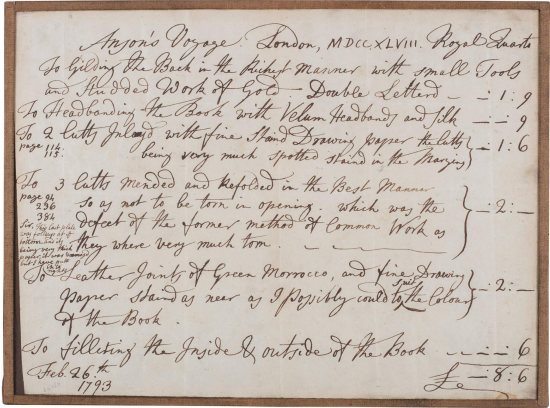 Anson's Voyage. London, MDCCXLVIII. Royal Quarto
To Gilding the Back in the Richest Manner with small Tools
and Studded Work of Gold – Double Letterd – – : 1 : 9
To Headbanding the Book with Velum Headbands and Silk – : – 9
To 2 Cutts Inlay'd with fine Staind Drawing paper the Cutts
page 114. 115.
being very much spotted & staind in the Margins – : 1 : 6
To 3 Cutts mended and Refolded in the Best Manner
page 94
236
384
so as not to be torn in opening. which was the – 2 : –
defect of the former method of Common Work as
they where very much torn.
Sir, This last plate
bottom and its
being very thick
paper,
but I have
To Leather Joints of Green Morrocco, and fine Drawing
paper staind as near as I possibly could to suit the Colour – 2 : –
of the Book.
To filliting the Inside & outside of the Book – : – 6
Feb. 26.th £ – 8 : 6
1793